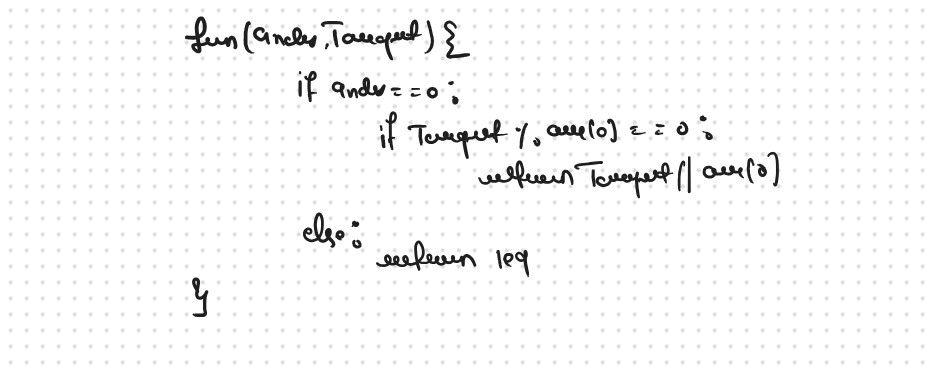 fun(index, Target) {
if index == 0 :
if Target % arr[0] == 0 :
return Target // arr[0]
else :
return 1e9
}